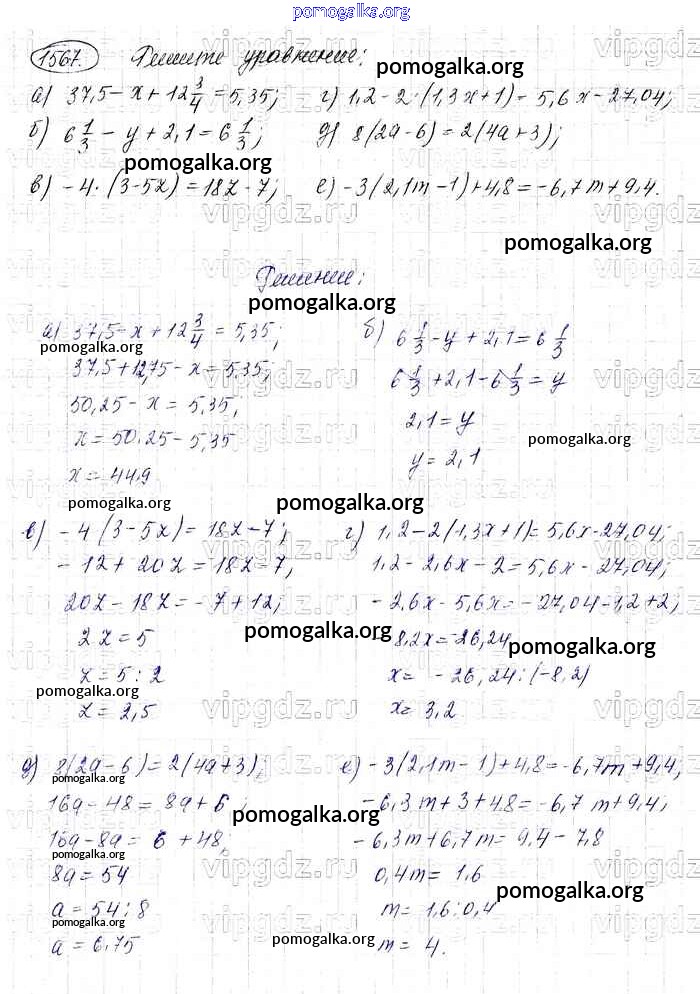 pomogalka.org
1567. Решите уравнение:
pomogalka.org
а) 37,5 - x + 12 3/4 = 5,35; г) 1,2 - 2·(1,3x+1) = 5,6x - 27,04;
б) 6 1/3 - y + 2,1 = 6 1/3; д) 8(2a-6) = 2(4a+3);
pomogalka.org
в) -4·(3-5z) = 18z - 7; е) -3(2,1m-1)+4,8 = -6,7m+9,4.
vipgdz.ru
pomogalka.org
Решение:
pomogalka.org
а) 37,5 - x + 12 3/4 = 5,35; б) 6 1/3 - y + 2,1 = 6 1/3
pomogalka.org
37,5 + 12,75 - x = 5,35; 6 1/3 + 2,1 - 6 1/3 = y
50,25 - x = 5,35; 2,1 = y
x = 50.25 - 5,35 pomogalka.org
x = 44,9 y = 2,1
pomogalka.org pomogalka.org
в) -4(3-5z) = 18z - 7; г) 1,2 - 2(1,3x+1) = 5,6x - 27,04;
-12 + 20z = 18z - 7; 1,2 - 2,6x - 2 = 5,6x - 27,04;
20z - 18z = -7 + 12; -2,6x - 5,6x = -27,04 - 1,2 + 2;
pomogalka.org
2z = 5 -8,2x = -26,24
pomogalka.org
z = 5 : 2 x = -26,24 : (-8,2)
pomogalka.org
z = 2,5 x = 3,2.
vipgdz.ru
д) 8(2a-6) = 2(4a+3); е) -3(2,1m-1)+4,8 = -6,7m+9,4;
pomogalka.org
16a - 48 = 8a + 6; -6,3m + 3 + 4,8 = -6,7m + 9,4;
pomogalka.org
16a - 8a = 6 + 48; -6,3m + 6,7m = 9,4 - 7,8
pomogalka.org
8a = 54 0,4m = 1,6
pomogalka.org
a = 54 : 8 m = 1,6 : 0,4
pomogalka.org
a = 6,75 m = 4.
pomogalka.org